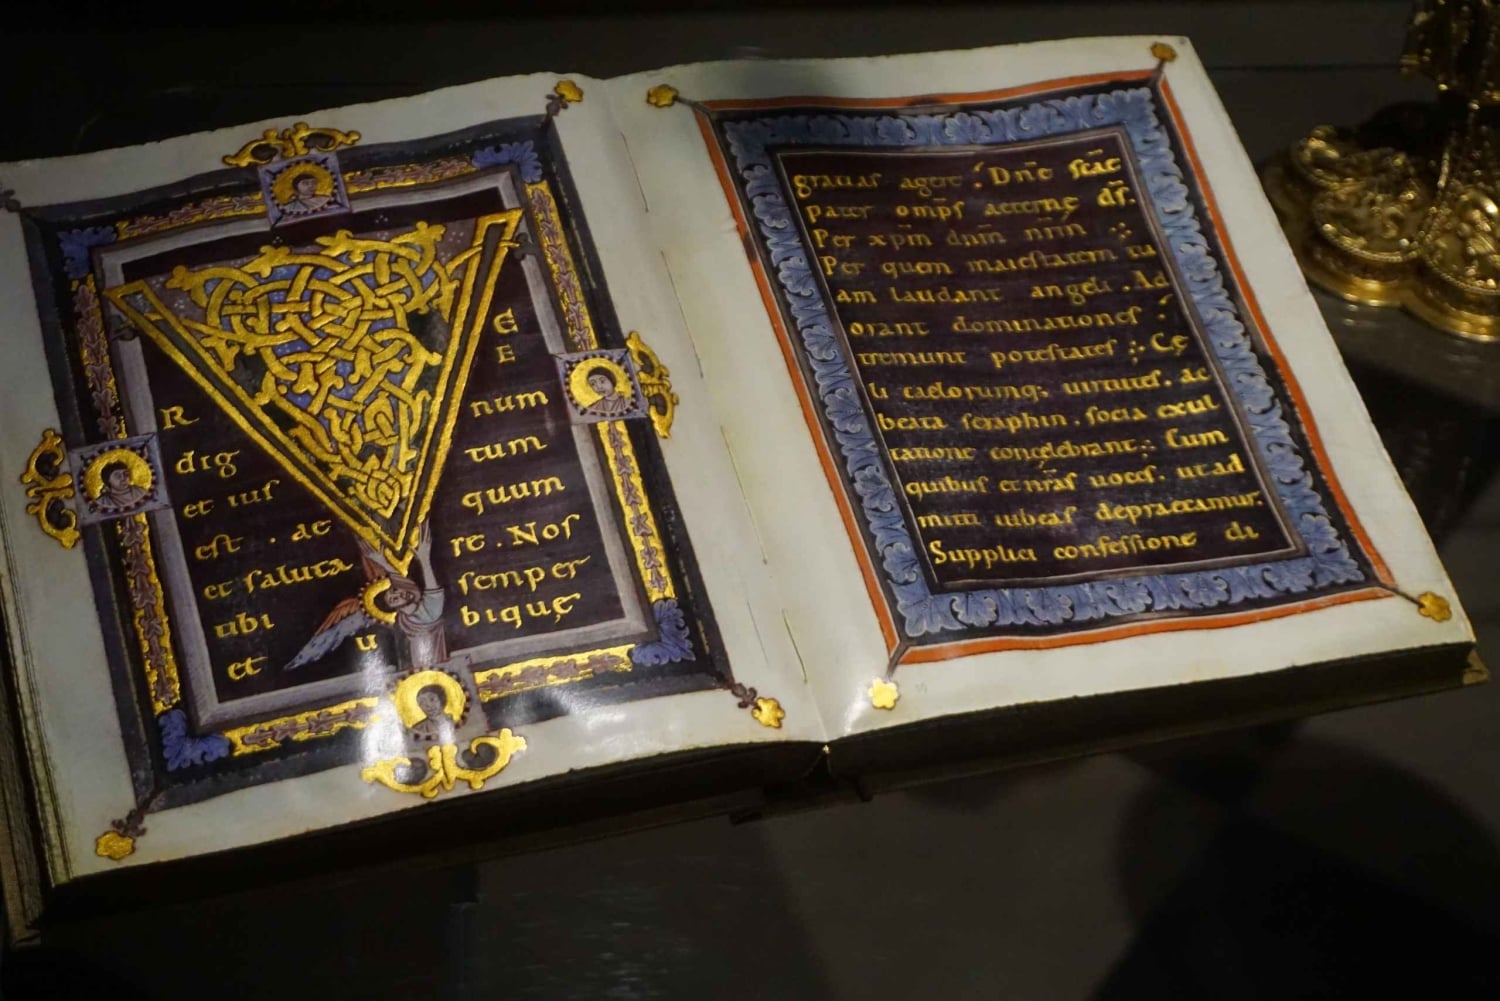 V E
E
R num
dig tum
et ius quum
est . ac re . Nos
et saluta semper
ubi bique
et u
gratias agere : Dn̄e sc̄ae
pater omp̄s aeternę ds̄.
Per xpm̄ dnm̄ nr̄m :
Per quem maiestatem tu
am laudant angeli . Ad
orant dominationes :
tremunt potestates : Cę
li caelorumq; uirtutes . ac
beata seraphin . socia exul
tatione concelebrant : Cum
quibus et nr̄as uoces . ut ad
mitti iubeas depraecamur .
Supplici confessione di